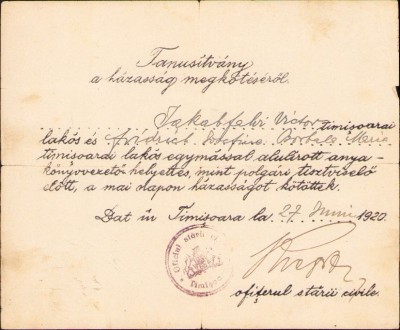 Tanusitvány
a házasság megkötéséről.
Jakabfalvi Victor timisoarai
lakós és Josefine Maria
timisoarai lakós egymással alulirott anya-
könyvvezető helyettes, mint polgári tisztviselő
előtt, a mai napon házasságot kötöttek.
Dat în Timișoara la 27 Iunie 1920.
Oficiul stării civile
Timișoara
ofițerul stării civile.